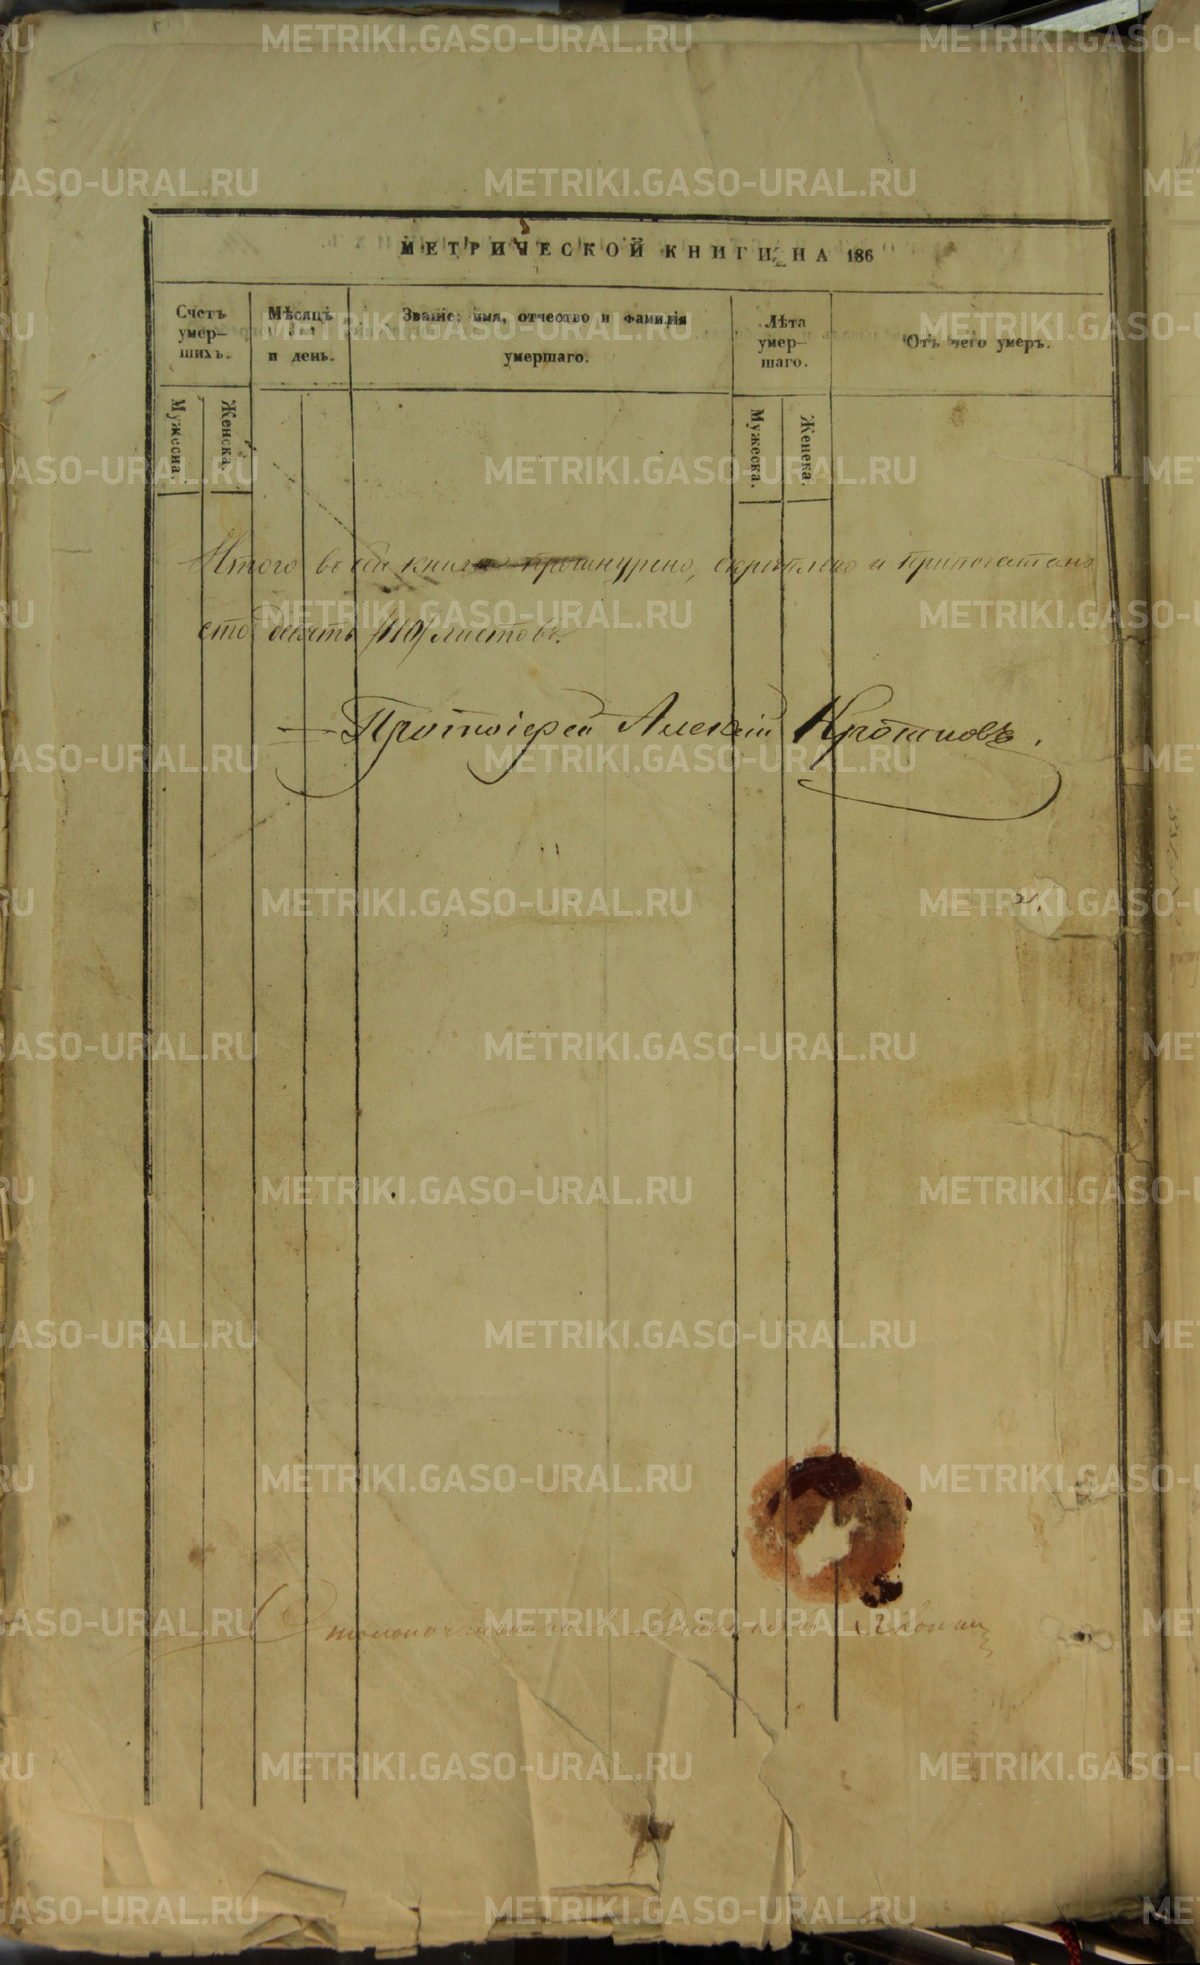 МЕТРИЧЕСКОЙ КНИГИ, НА 186
Счетъ умер-шихъ.
Мѣсяцъ и день.
Званіе, имя, отчество и фамилія умершаго.
Лѣта умер-шаго.
Отъ чего умеръ.
Мужеска.
Женска.
Мужеска.
Женска.
Итого въ сей книгѣ прошнурено, скрѣплено и припечатано
сто десять /110/ листовъ.
Протоіерей Алексій Кротковъ.
Столоначальникъ
METRIKI.GASO-URAL.RU